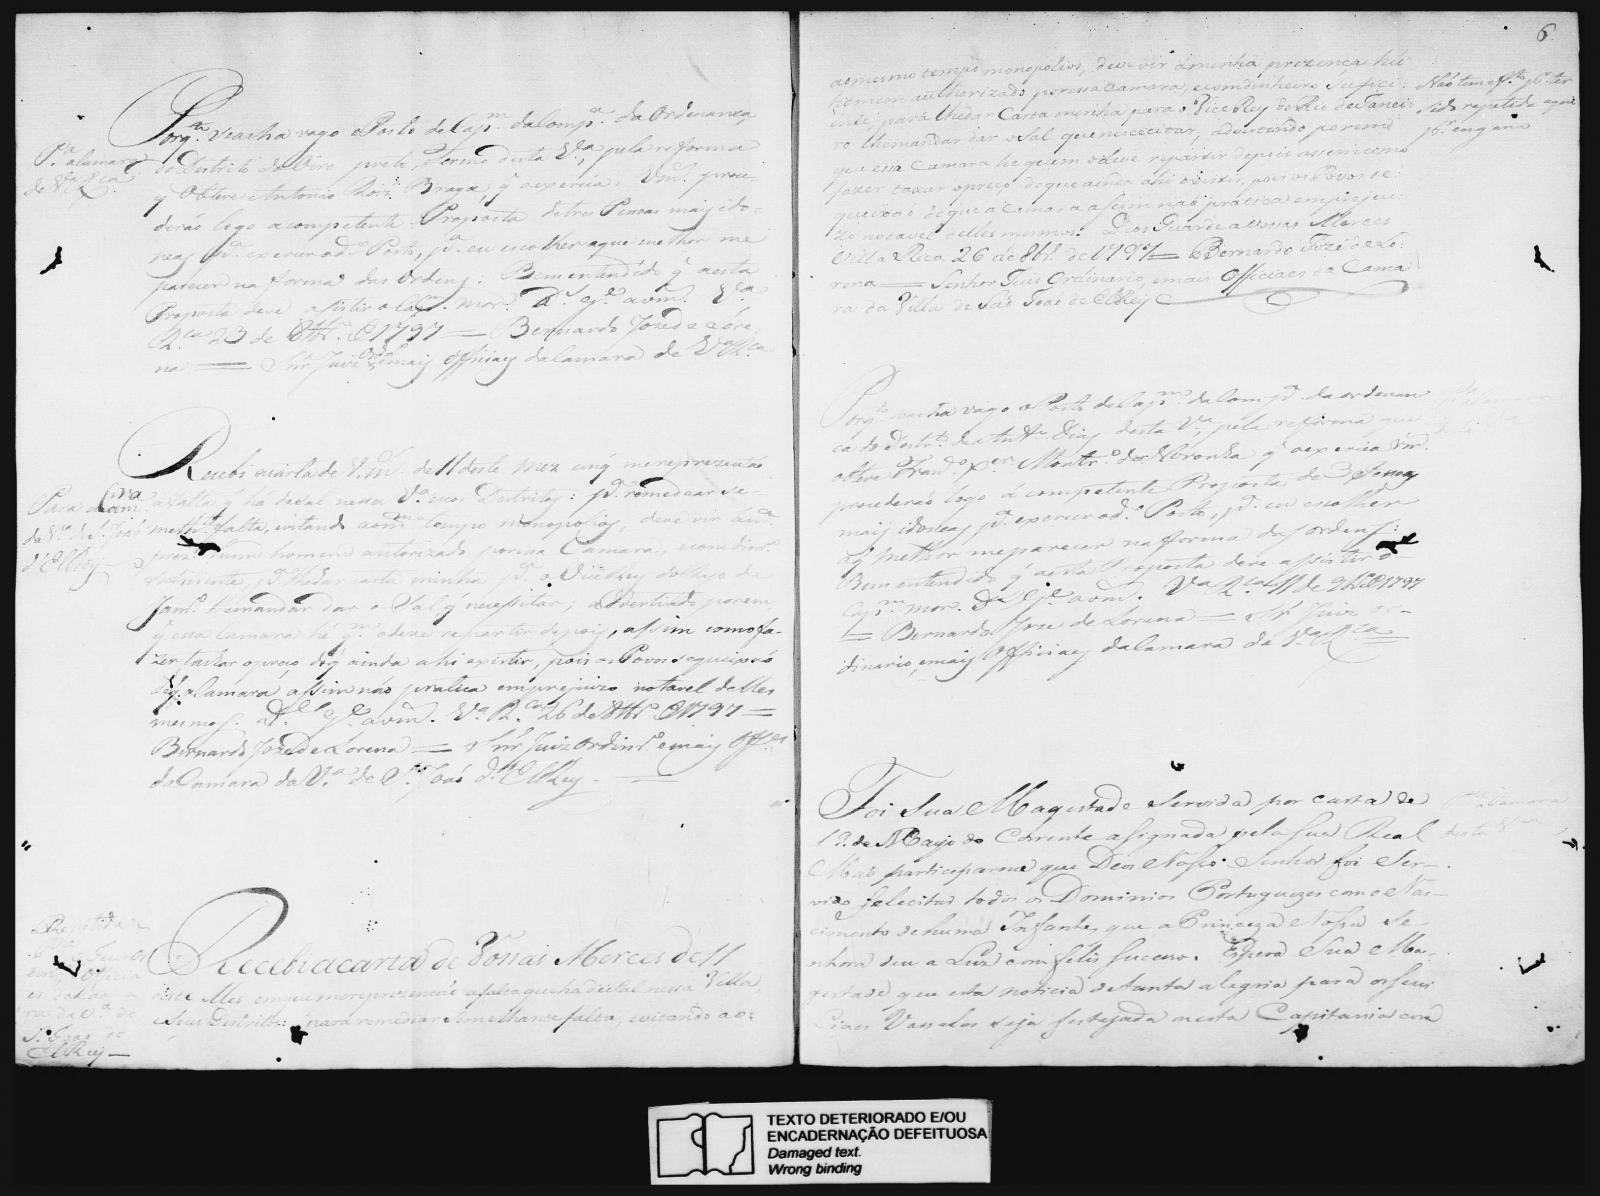 Porq.to seacha vago o Posto de Cap.m da Comp.a da Ordenança
do Districto do Oiro preto, e termo desta V.a, pela reforma
q obteve Antonio Roiz Braga, q o exercia. Vm.ces proce-
derão logo a competente Proposta de tres Pessoas mais ido-
neas p.a exercer o d.o Posto, p.a eu escolher aque melhor me
parecer na forma das Ordens: Bem entendido q a esta
Proposta deve assistir o Cap.m mor. D.s g.e a vm.ces V.a
R.ca 23 de 8br.o de 1797 = Bernardo Jozé de Lore-
na = Snr. Juiz Ordin.o e mais Officiaes da Camara de V.a R.ca
P.a a Camara
de V.a R.ca
Recebi a carta de V.m.ces de 11 deste mez em q me reprezentão
a falta q há de sal nessa V.a e seos Destritos: p.a remedear se-
melh.e falta, evitando ao m.mo tempo monopolios, deve vir á m.a
prez.ça hum homem autorizado por essa Camara, e com dinhr.o
suficiente, p.a lhe dar carta minha p.a o ViceRey do Rio de
Janr.o lhe mandar dar o Sal q necessitar; advertindo porem,
q essa Camara hé q.m o deve repartir depois, assim como fa-
zer taxar o preço do q ainda ahi existir, pois os Povos se queixão
de q a Camara assim não pratica em prejuizo notavel delles
mesmos. D.s g.e a vm.ces V.a R.ca 26 de 8br.o de 1797 =
Bernardo Jozé de Lorena = Snr. Juiz Ordinr.o e mais Off.es
da Camara da V.a de S. João d'ElRey.
Para a Cam.ra
da V.a de S. João
d'ElRey
Recebi a carta de Vossas Merces de 11
deste Mes em que me reprezentão a falta que ha de sal nessa Villa,
e seus Destritos: para remediar semelhante falta, evitando ao
Repetida
S. João de
ElRey
6
ao mesmo tempo monopolios, deve vir á minha prezença hú
homem authorizado por essa Camara, e com dinheiro sufici-
ente, para lhe dar Carta minha para o ViceRey do Rio de Janei-
ro lhe mandar dar o Sal que nececitar; advertindo porem
que essa Camara he quem o deve repartir depois assim como
fazer taxar o preço do que ainda ahi existir, pois os Povos se
queixão de que a Camara assim não pratica em prejui-
zo notavel delles mesmos. Deos Guarde a Vossas Merces
Villa Rica 26 de 8br.o de 1797 = Bernardo Jozé de Lo-
rena = Senhor Juis Ordinario, e mais Officiaes da Cama
ra da Villa de São João de ElRey
Não tem eff.to p.r ter
sido repetida aqui
p.r engano
Porq.to se acha vago o Posto de Cap.m da Comp.a da ordenan
ça do Destr.o de desta V.a, pela reforma que
obteve Fran.co Per.a Montr.o de Noronha q o exercia Vm.ces
procederão logo á competente Proposta de 3 Pessoas
mais idoneas p.a exercer o d.o Posto, p.a eu escolher
a q melhor me parecer na forma das ordens:
Bem entendido q a esta Proposta deve assistir o
Cap.m mor. D.s g.e a vm.ces V.a R.ca 11 de 9br.o de 1797
= Bernardo Jozé de Lorena = Snr. Juiz or-
dinario, e mais Officiaes da Camara de V.a R.ca
Foi Sua Magestade Servida por carta de
19. de Mayo do Corrente assignada pela Sua Real
Mão participarme que Deos Nosso Senhor foi Ser-
vido felecitar todos os Dominios Portuguezes com o Nas-
cimento de huma Infante, que a Princeza Nossa Se-
nhora deu a Luz com feliz sucesso. Espera Sua Ma-
gestade que esta noticia de tanta alegria para os seus
Liaes Vassalos seja festejada nesta Capitania com
P.a a Camara
desta V.a
TEXTO DETERIORADO E/OU
ENCADERNAÇÃO DEFEITUOSA
Damaged text.
Wrong binding